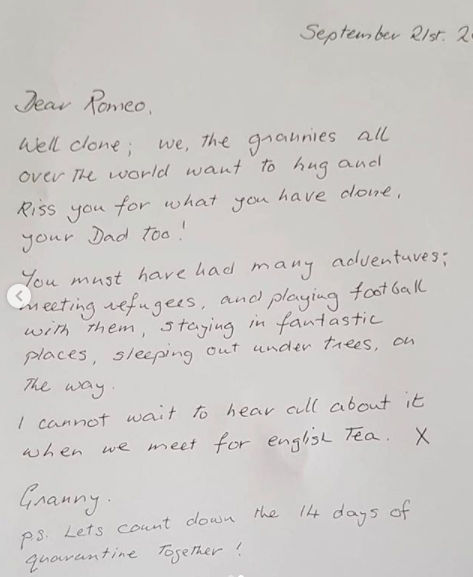 September 21st. 2
Dear Romeo,
Well done; we, the grannies all
over the world want to hug and
kiss you for what you have done,
your Dad too!
You must have had many adventures;
meeting refugees, and playing football
with them, staying in fantastic
places, sleeping out under trees, on
the way.
I cannot wait to hear all about it
when we meet for english Tea. X
Granny.
ps. Lets count down the 14 days of
quarantine Together!